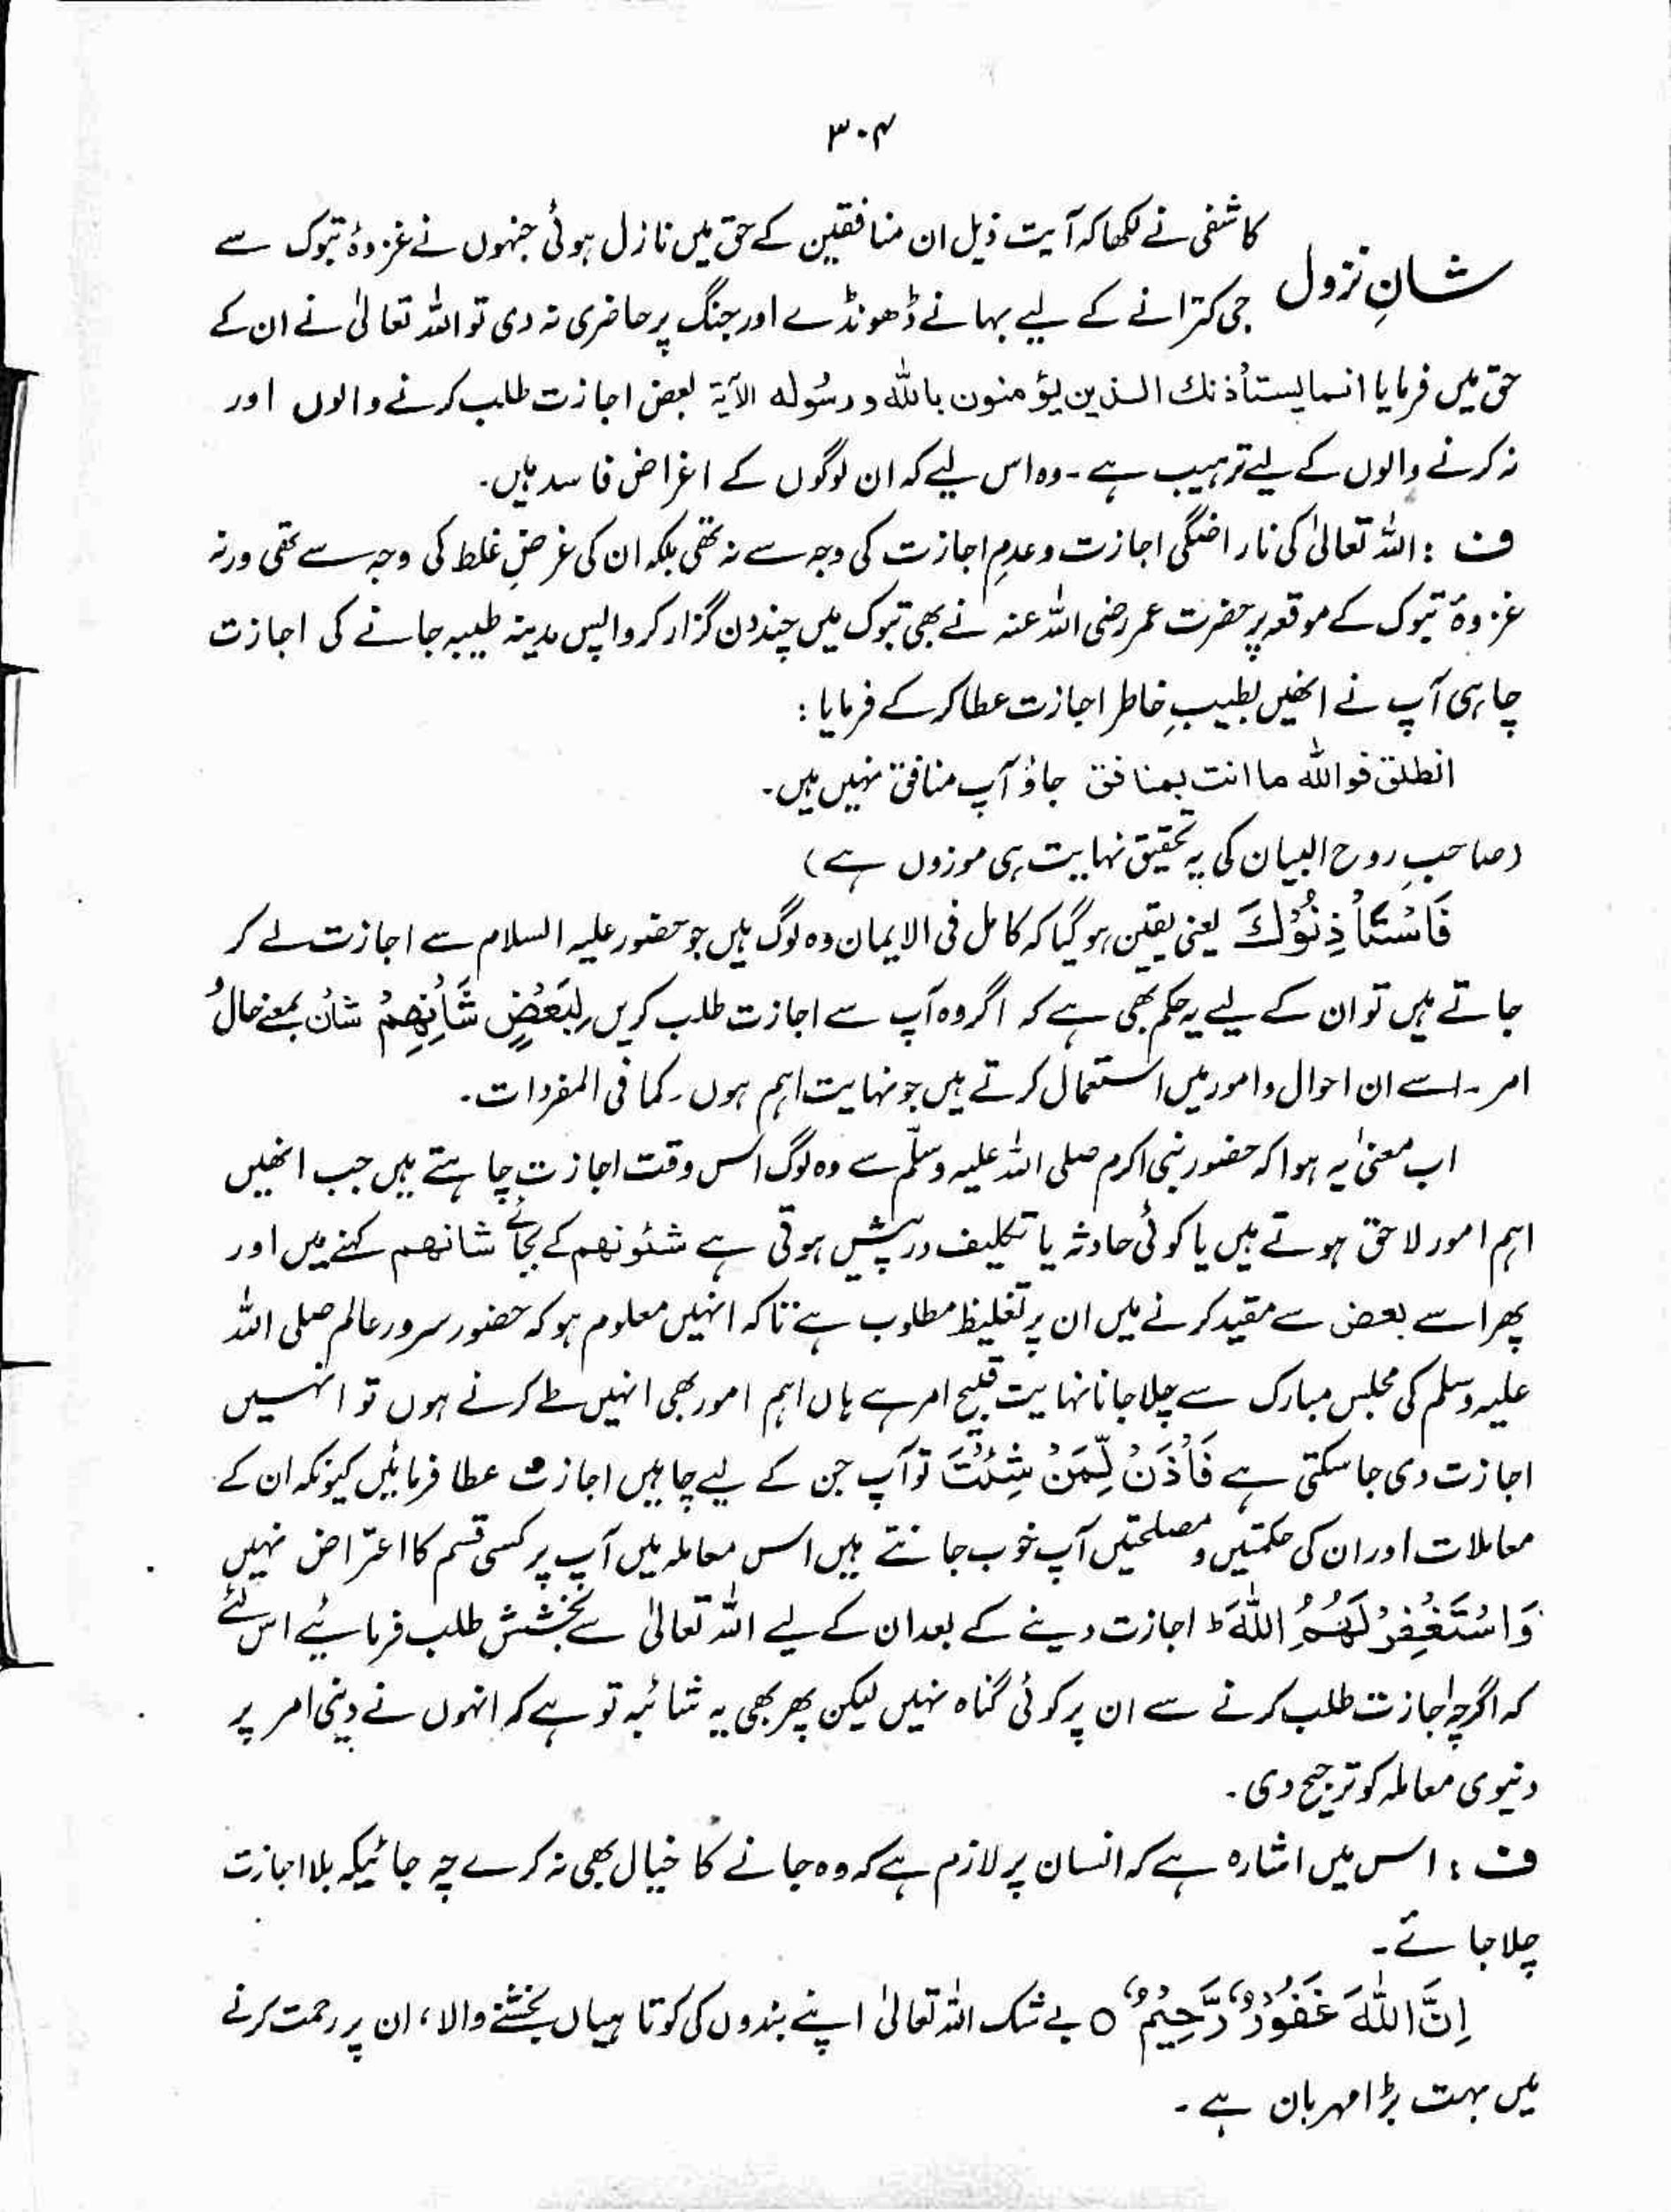 ۳۰۴
شانِ نزول کاشفی نے لکھا کہ آیت ذیل ان منافقین کے حق میں نازل ہوئی جنہوں نے غزوۂ تبوک سے
جی کترانے کے لیے بہانے ڈھونڈے اور جنگ پر حاضری نہ دی تو اللہ تعالیٰ نے ان کے
حق میں فرمایا انما یستأذنك الذین یؤمنون باللّٰه ورسُوله الآیة بعض اجازت طلب کرنے والوں اور
نہ کرنے والوں کے لیے ترہیب ہے۔ وہ اس لیے کہ ان لوگوں کے اغراض فاسد ہیں۔
ف : اللہ تعالیٰ کی ناراضگی اجازت و عدمِ اجازت کی وجہ سے نہ تھی بلکہ ان کی غرضِ غلط کی وجہ سے تھی ورنہ
غزوۂ تبوک کے موقعہ پر حضرت عمر رضی اللہ عنہ نے بھی تبوک میں چند دن گزار کر واپس مدینہ طیبہ جانے کی اجازت
چاہی آپ نے انھیں بطیبِ خاطر اجازت عطا کر کے فرمایا :
انطلق فواللّٰه ما انت بمنافق جاؤ آپ منافق نہیں ہیں۔
(صاحبِ روح البیان کی یہ تحقیق نہایت ہی موزوں ہے)
فَاسْتَأْذِنُوْكَ یعنی یقین ہو گیا کہ کامل فی الایمان وہ لوگ ہیں جو حضور علیہ السلام سے اجازت لے کر
جاتے ہیں تو ان کے لیے یہ حکم بھی ہے کہ اگر وہ آپ سے اجازت طلب کریں لِبَعْضِ شَأْنِهِمْ شأن بمعنے حال و
امر۔ اسے ان احوال و امور میں استعمال کرتے ہیں جو نہایت اہم ہوں۔ کما فی المفردات۔
اب معنیٰ یہ ہوا کہ حضور نبی اکرم صلی اللہ علیہ وسلّم سے وہ لوگ اس وقت اجازت چاہتے ہیں جب انھیں
اہم امور لاحق ہوتے ہیں یا کوئی حادثہ یا تکلیف درپیش ہوتی ہے شئونهم کے بجائے شانهم کہنے میں اور
پھر اسے بعض سے مقید کرنے میں ان پر تغلیظ مطلوب ہے تاکہ انہیں معلوم ہو کہ حضور سرور عالم صلی اللہ
علیہ وسلم کی مجلس مبارک سے چلا جانا نہایت قبیح امر ہے ہاں اہم امور بھی انہیں طے کرنے ہوں تو انہیں
اجازت دی جا سکتی ہے فَأْذَنْ لِّمَنْ شِئْتَ تو آپ جن کے لیے چاہیں اجازت عطا فرمائیں کیونکہ ان کے
معاملات اور ان کی حکمتیں و مصلحتیں آپ خوب جانتے ہیں اس معاملہ میں آپ پر کسی قسم کا اعتراض نہیں
وَاسْتَغْفِرْ لَهُمُ اللّٰهَ ط اجازت دینے کے بعد ان کے لیے اللہ تعالیٰ سے بخشش طلب فرمائیے اس لئے
کہ اگرچہ اجازت طلب کرنے سے ان پر کوئی گناہ نہیں لیکن پھر بھی یہ شائبہ تو ہے کہ انہوں نے دینی امر پر
دنیوی معاملہ کو ترجیح دی۔
ف : اس میں اشارہ ہے کہ انسان پر لازم ہے کہ وہ جانے کا خیال بھی نہ کرے چہ جائیکہ بلا اجازت
چلا جائے۔
اِنَّ اللّٰهَ غَفُوْرٌ رَّحِيْمٌ ○ بے شک اللہ تعالیٰ اپنے بندوں کی کوتاہیاں بخشنے والا، ان پر رحمت کرنے
میں بہت بڑا مہربان ہے۔